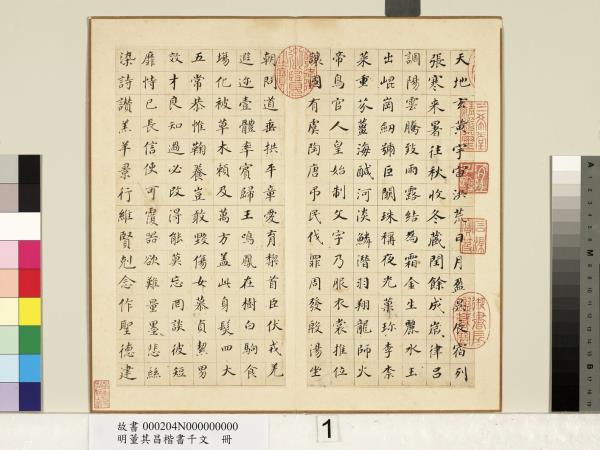 天地玄黃宇宙洪荒日月盈昃辰宿列
張寒来暑往秋收冬藏閏餘成歲律呂
調陽雲騰致雨露結為霜金生麗水玉
出崐崗劒號巨闕珠稱夜光菓珍李柰
菜重芥薑海醎河淡鱗潛羽翔龍師火
帝鳥官人皇始制文字乃服衣裳推位
讓國有虞陶唐弔民伐罪周發殷湯坐
朝問道垂拱平章愛育黎首臣伏戎羌
遐迩壹體率賓歸王鳴鳳在樹白駒食
場化被草木賴及萬方蓋此身髮四大
五常恭惟鞠養豈敢毀傷女慕貞絜男
效才良知過必改得能莫忘罔談彼短
靡恃己長信使可覆器欲難量墨悲絲
染詩讚羔羊景行維賢剋念作聖德建
故書 000204N000000000
明董其昌楷書千文 冊
1